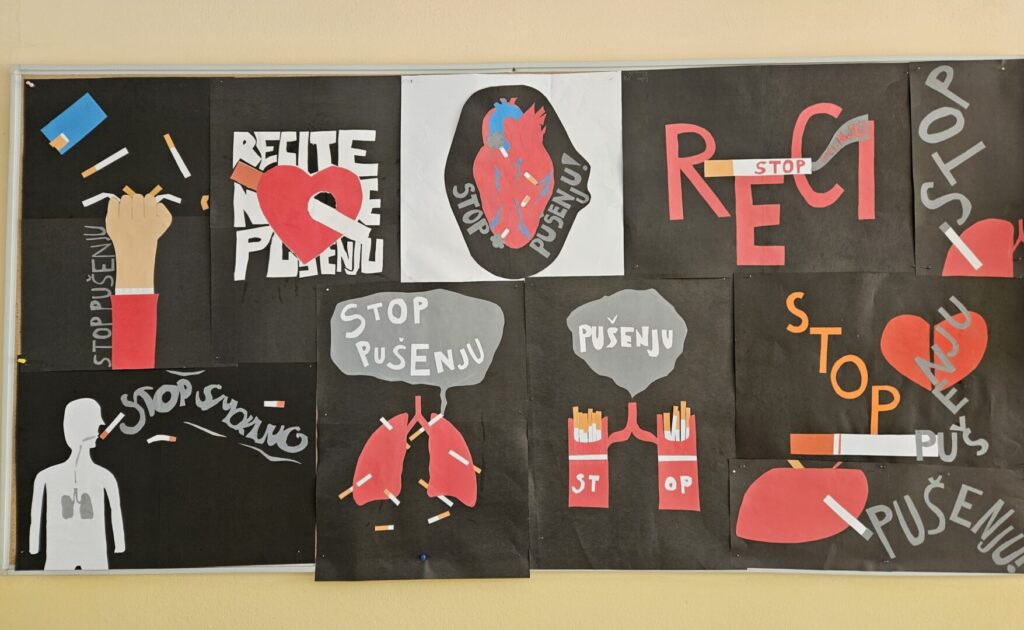 STOP PUŠENJU
RECITE
PUŠENJU
STOP
PUŠENJU!
RECI
STOP
STOP
STOP
STOP
PUŠENJU
PUŠENJU
ST OP
STOP
PUŠENJU
PUŠENJU!